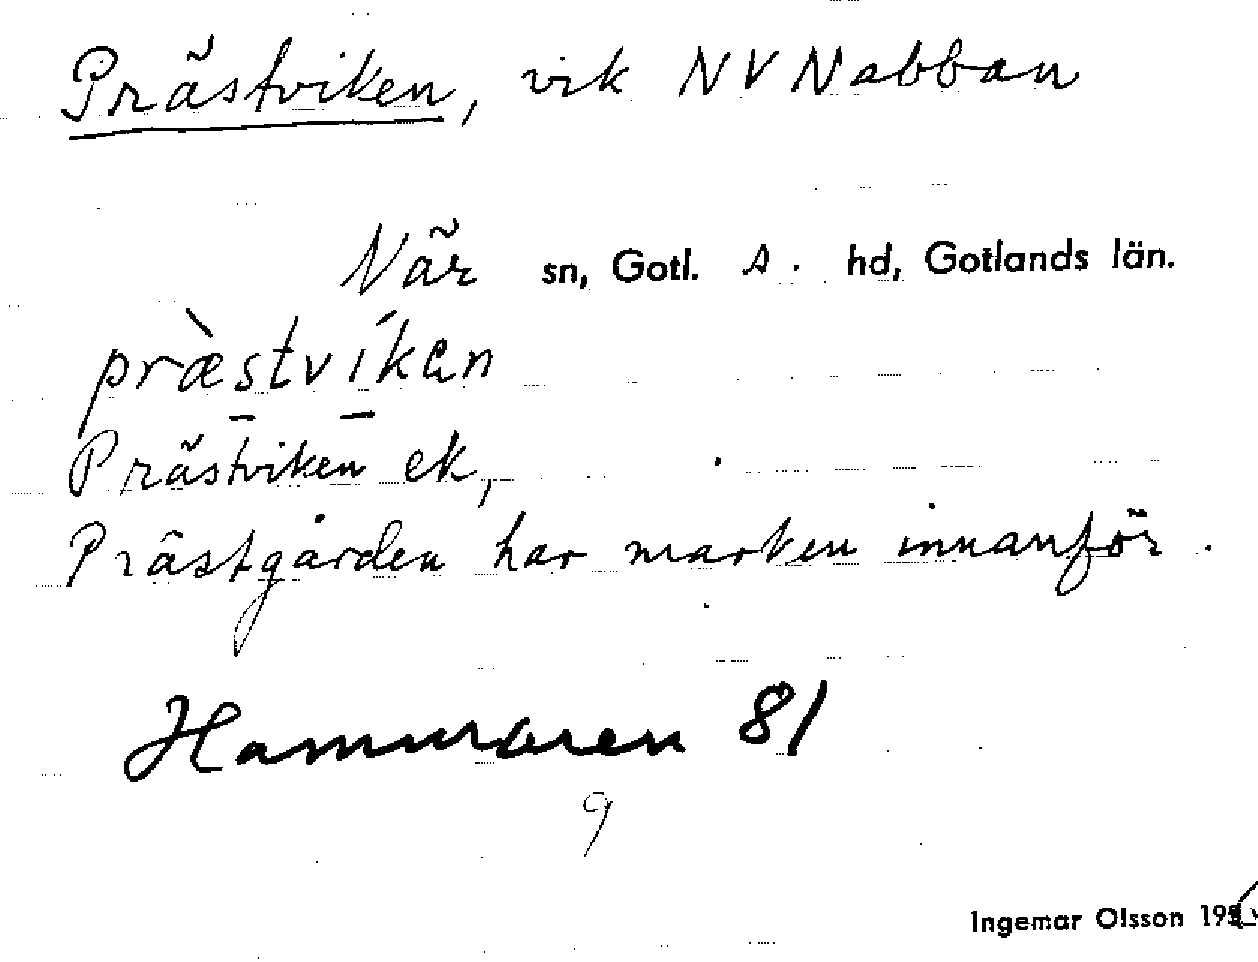 Prästviken, vik NV Nabban
När sn, Gotl. s. hd, Gotlands län.
præ̀stvíkən
Prästviken ek,
Prästgården har marken innanför.
Hammaren 81
9
Ingemar Olsson